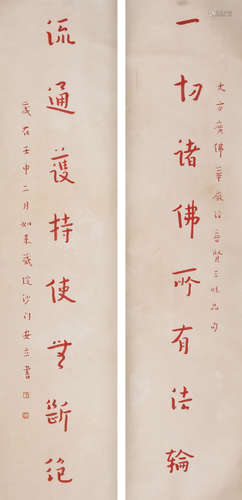 大方广佛華嚴經普賢三昧品句
一切諸佛所有法輪
流通護持使無斷絕
歲在壬申二月如來藏院沙門安立書